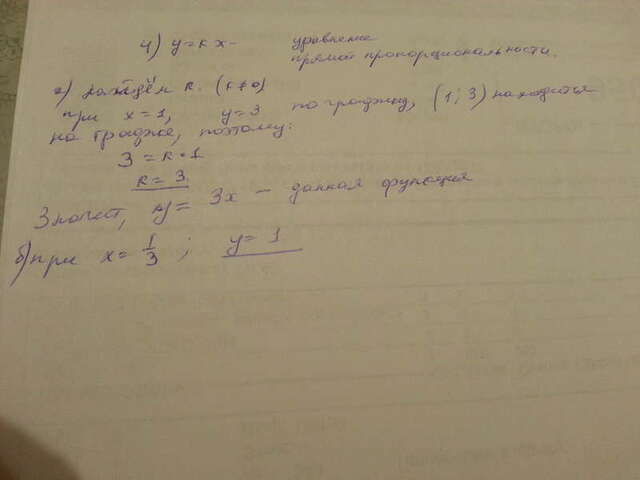 4) y = kx - уравнение
прямой пропорциональности.
а) найдём k. (k ≠ 0)
при x = 1, y = 3 по графику, (1; 3) находится
на графике, поэтому:
3 = k • 1
k = 3
Значит, y = 3x - данная функция
б) при x = 1/3 ; y = 1